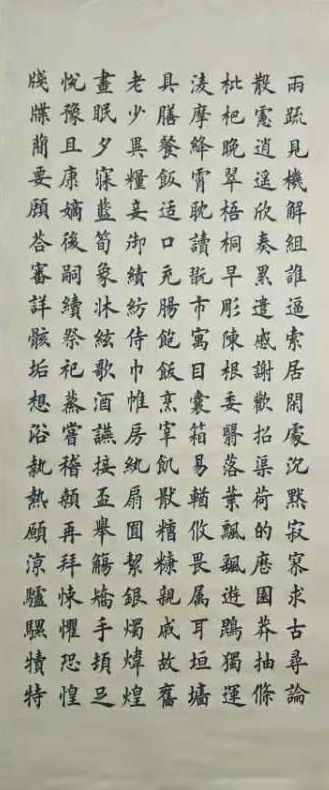 兩疏見機解組誰逼索居閒處沉默寂寥求古尋論
散慮逍遙欣奏累遣慼謝歡招渠荷的歷園莽抽條
枇杷晚翠梧桐早彫陳根委翳落葉飄颻遊鵾獨運
淩摩絳霄耽讀翫市寓目囊箱易輶攸畏属耳垣墻
具膳餐飯适口充腸飽飫烹宰飢猒糟糠親戚故舊
老少異糧妾御績紡侍巾帷房紈扇圓絜銀燭煒煌
晝眠夕寐藍筍象牀絃歌酒讌接盃舉觴矯手頓足
悅豫且康嫡後嗣續祭祀蒸嘗稽顙再拜悚懼恐惶
牋牒簡要顧荅審詳骸垢想浴執熱願涼驢騾犢特